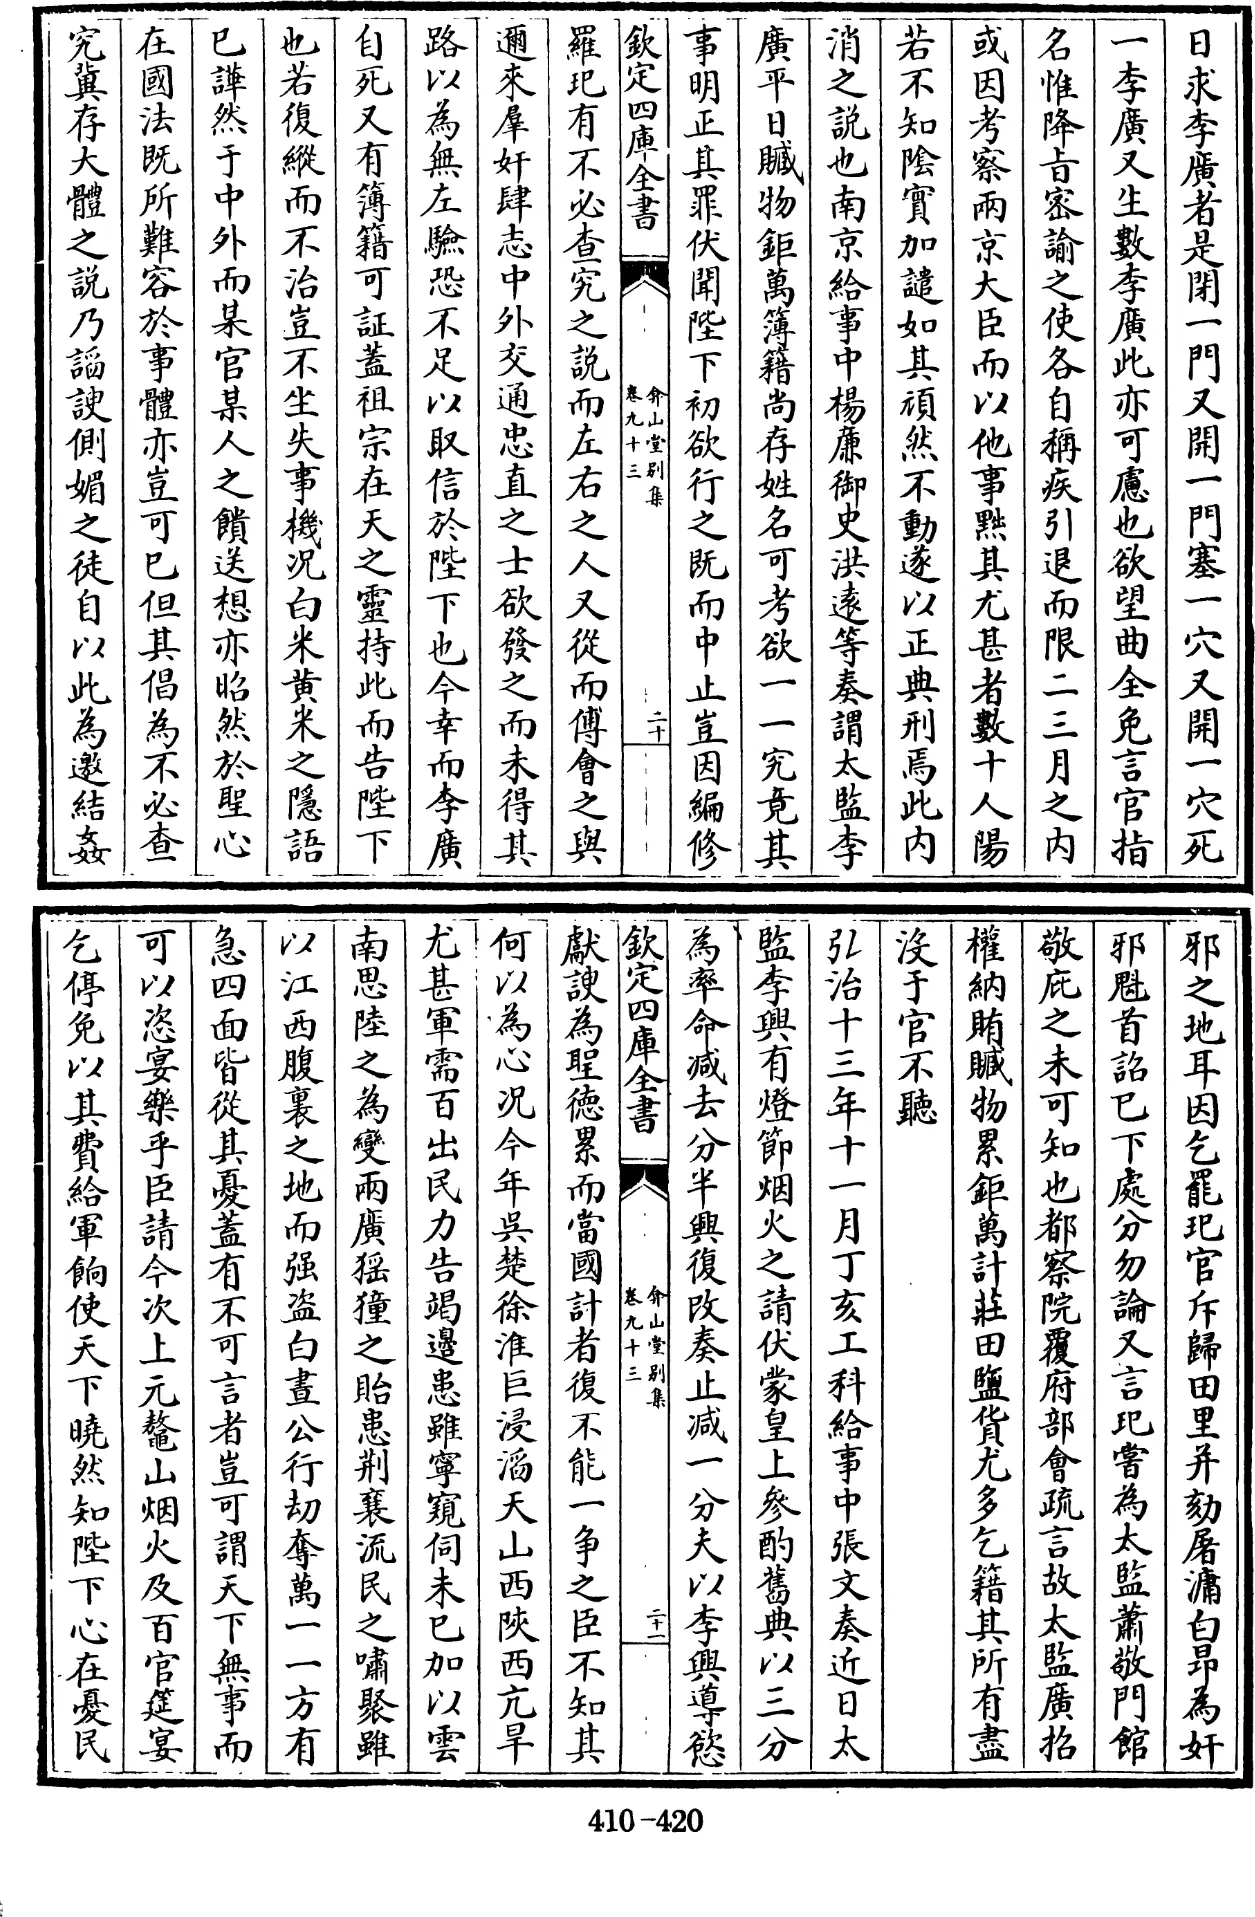 日求李廣者是閉一門又開一門塞一穴又開一穴死
一李廣又生數李廣此亦可慮也欲望曲全免言官指
名惟降旨密諭之使各自稱疾引退而限二三月之内
或因考察兩京大臣而以他事黜其尤甚者數十人陽
若不知陰實加譴如其頑然不動遂以正典刑焉此内
消之説也南京給事中楊廉御史洪遠等奏謂太監李
廣平日贓物鉅萬簿籍尚存姓名可考欲一一究竟其
事明正其罪伏聞陛下初欲行之既而中止豈因編修
欽定四庫全書
弇山堂别集
卷九十三
二十
羅玘有不必查究之説而左右之人又從而傅會之與
邇來羣奸肆志中外交通忠直之士欲發之而未得其
路以為無左驗恐不足以取信於陛下也今幸而李廣
自死又有簿籍可証蓋祖宗在天之靈持此而告陛下
也若復縱而不治豈不坐失事機况白米黄米之隱語
已譁然于中外而某官某人之饋送想亦昭然於聖心
在國法既所難容於事體亦豈可已但其倡為不必查
究冀存大體之説乃謟諛側媚之徒自以此為邀結姦
邪之地耳因乞罷玘官斥歸田里并劾屠滽白昂為奸
邪魁首詔已下處分勿論又言玘嘗為太監蕭敬門館
敬庇之未可知也都察院覆府部會疏言故太監廣招
權納賄贓物累鉅萬計莊田鹽貨尤多乞籍其所有盡
没于官不聽
弘治十三年十一月丁亥工科給事中張文奏近日太
監李興有燈節烟火之請伏蒙皇上參酌舊典以三分
為率命减去分半興復改奏止减一分夫以李興導慾
欽定四庫全書
弇山堂别集
卷九十三
二十一
獻諛為聖德累而當國計者復不能一争之臣不知其
何以為心况今年吳楚徐淮巨浸滔天山西陜西亢旱
尤甚軍需百出民力告竭邊患雖寧窺伺未已加以雲
南思陸之為變兩廣猺獞之貽患荆襄流民之嘯聚雖
以江西腹裏之地而强盗白晝公行刼奪萬一一方有
急四面皆從其憂蓋有不可言者豈可謂天下無事而
可以恣宴樂乎臣請今次上元鰲山烟火及百官筵宴
乞停免以其費給軍餉使天下曉然知陛下心在憂民
410-420